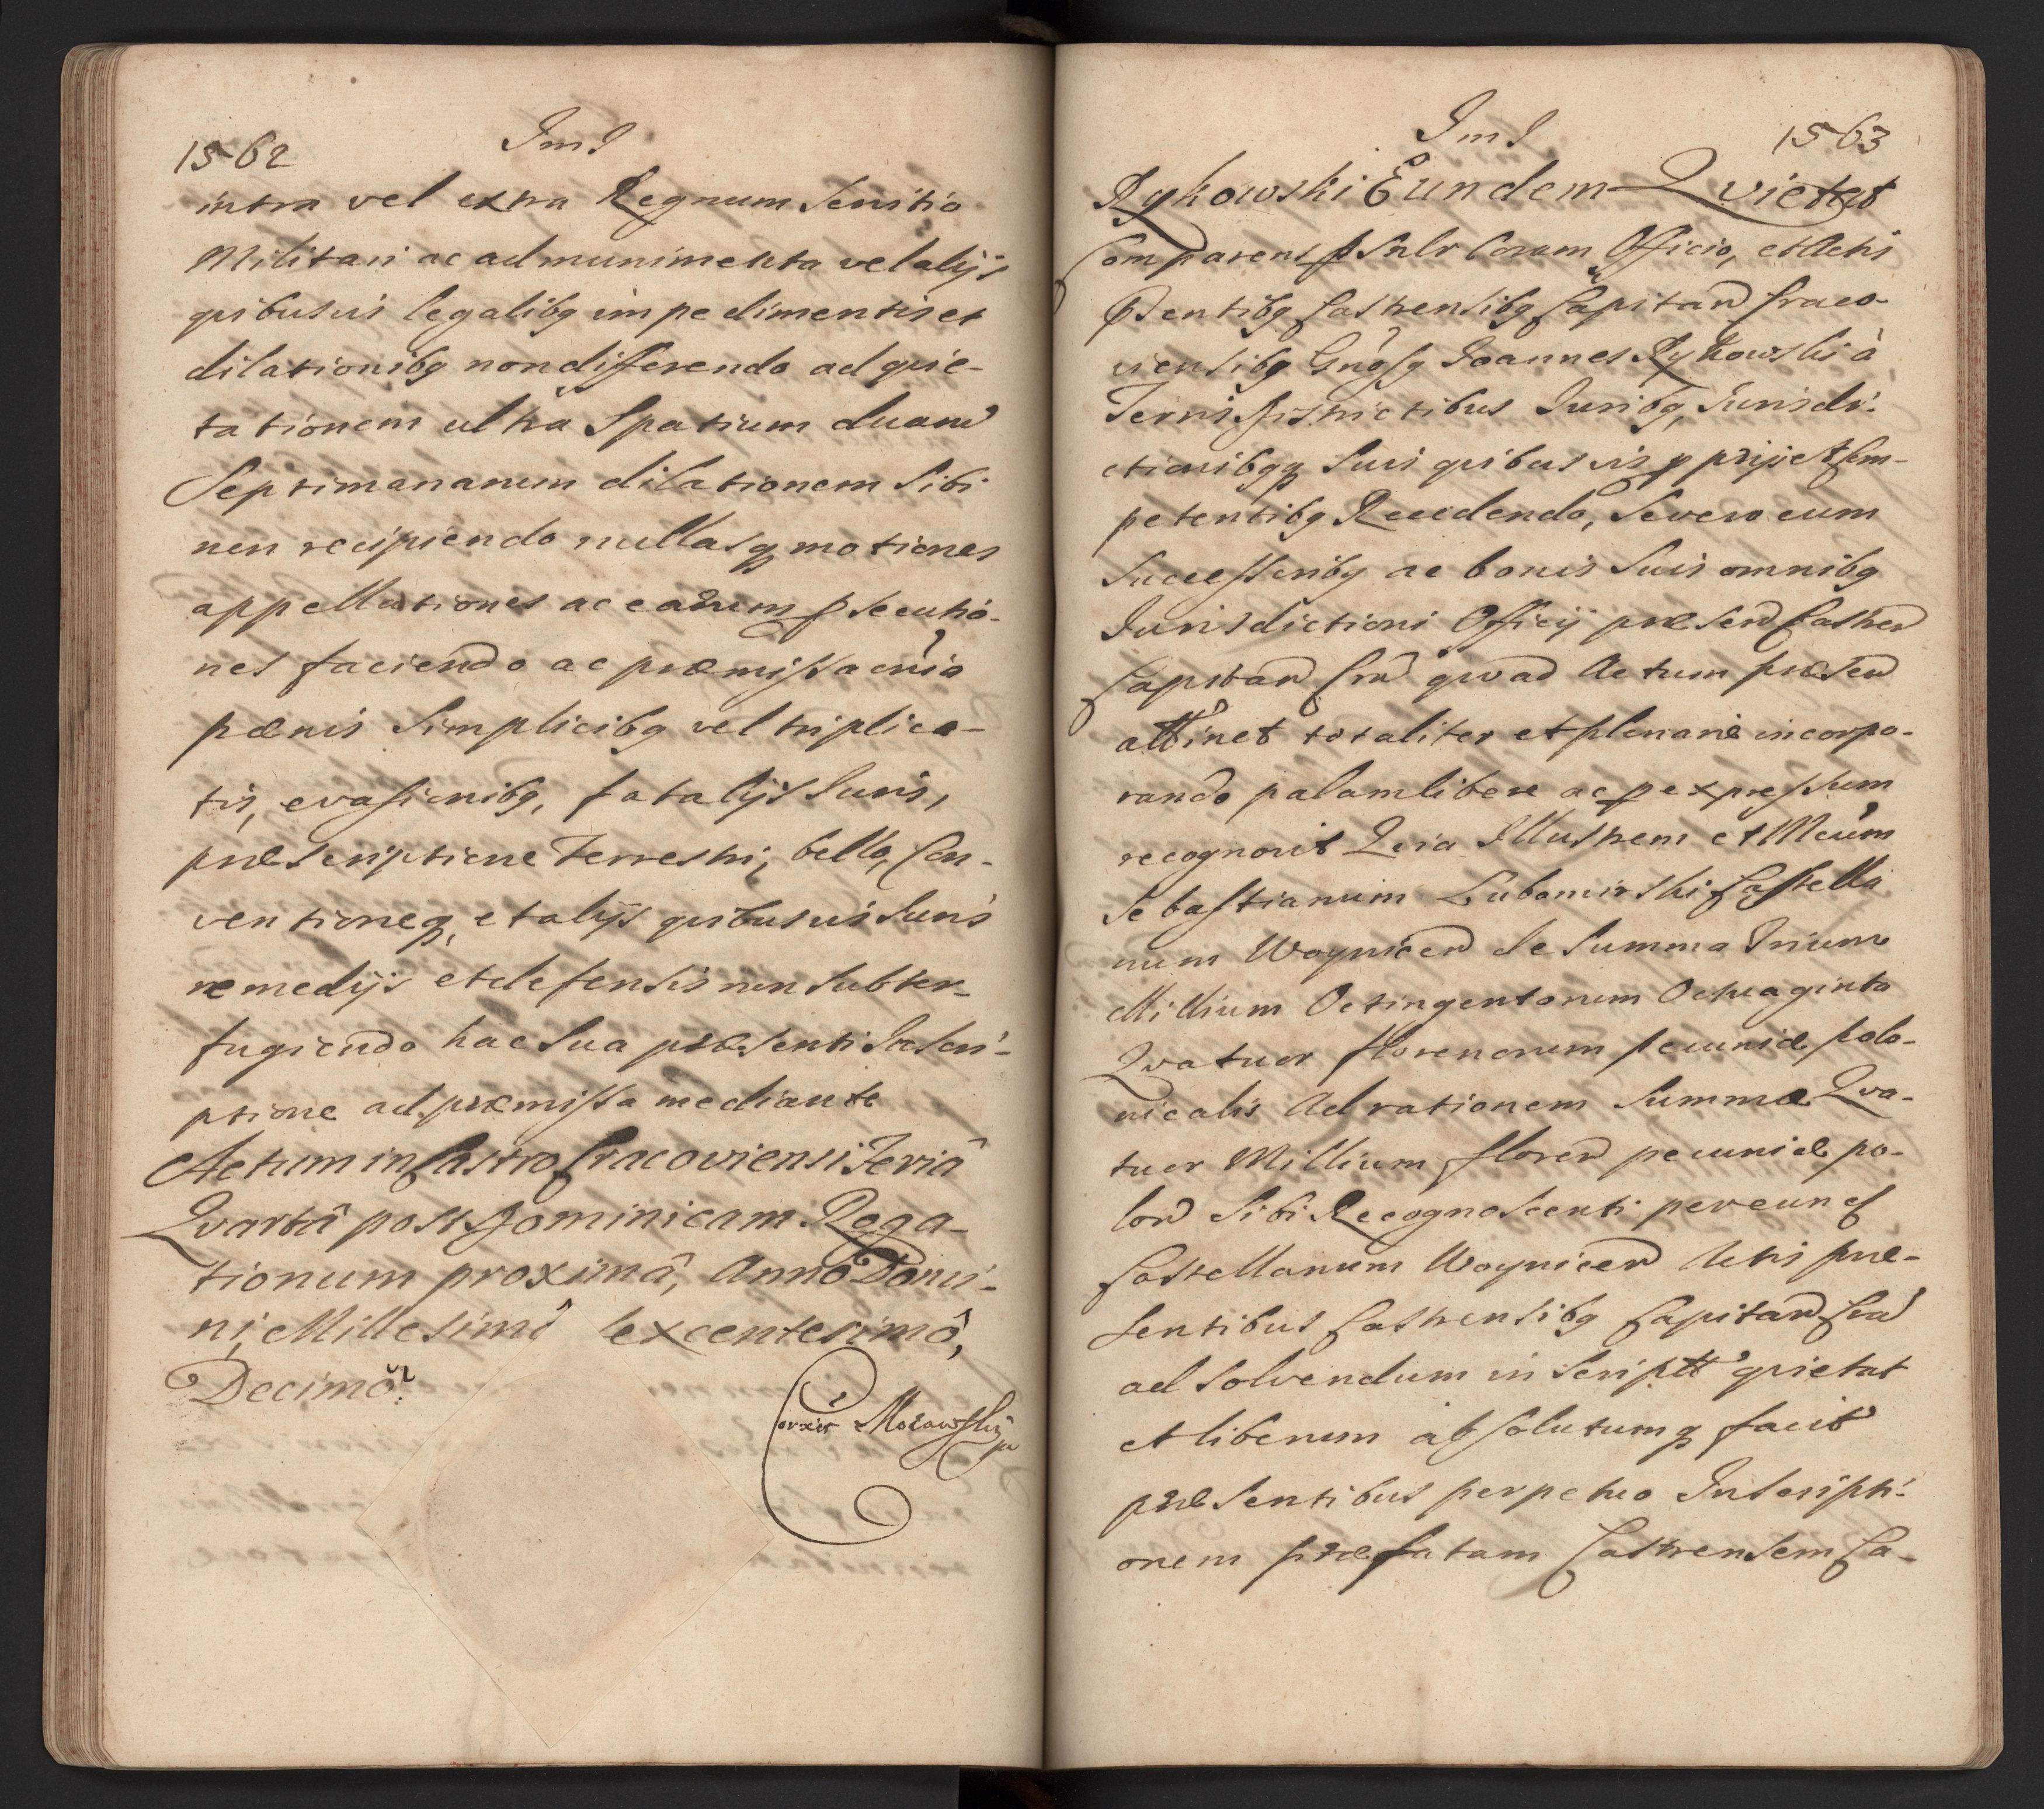 1562
ImI
intra vel extra Regnum Servitio
Militari ac ad munimenta vel alijs
quibusvis legalibq impedimentis et
dilationibq non differendo ad quie-
tationem ultra Spatium duaru
Septimananum dilationem Sibi
non recipiendo nullasq motiones
appellationes ac earum psecutio-
nes faciendo ac præmissa
pænis Simplicibq vel triplica-
tis, evasionibq, fatalijs Iuris,
præscriptione Terrestri, bello, Con-
ventioneq, et alijs quibusvis Iuris
remedijs et defensis non subter-
fugiendo hac Sua præsenti Inscri-
ptione ad præmissa mediante
Actum in Castro Cracoviensi Feriâ
Qvartâ post Dominicam Roga-
tionum proximâ, Anno Domi-
ni, Millesimô Sexcentesimô,
Decimô.
Corxit Morawski
ImI
1563
Rykowski Eundem Qvietat
Comparens psnlr Coram Officio, et Actis
Psentibq Castrensibq Capitan Craco-
viensibq Gnosq Joannes Rykowski à
Terris Districtibus Iuribq, Iurisdi-
ctionibqq Suis quibusvis pprijs et Com-
petentibq Recedendo, Se vero cum
Successoribq ac bonis Suis omnibq
Iurisdictioni Officij præsen Castren
Capitan Cra quoad Actum præsen
attinet totaliter et plenariè incorpo-
rando palam libere ac p expressum
recognovit Qvia Illustrem et Mcum
Sebastianum Lubomirski Castella
num Woynicen de Summa Trium
Millium Octingentorum Octuaginta
Qvatuor florenorum pecuniæ polo-
nicalis Ad rationem Summæ Qva-
tuor Millium floren pecuniæ po-
lon Sibi Recognoscenti per eund
Castellanum Woynicen Actis præ-
sentibus Castrensibq Capitan Cra
ad Solvendum inscriptt quietat
et liberum absolutumq facit
præsentibus perpetuo Inscripti-
onem præfatam Castrensem Ca-